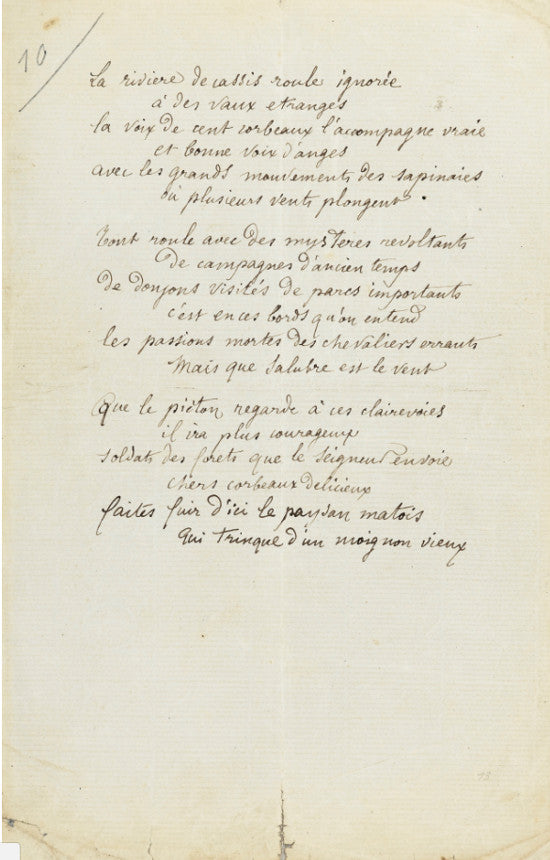 10
La riviere de cassis roule ignorée
à des vaux etranges
la voix de cent corbeaux l'accompagne vraie
et bonne voix d'anges
avec les grands mouvements des sapinaies
où plusieurs vents plongent.
Tout roule avec des mysteres revoltants
De campagnes d'ancien temps
De donjons visités de parcs importants
c'est en ces bords qu'on entend
les passions mortes des chevaliers errants
Mais que salubre est le vent
Que le piéton regarde à ces clairevoies
il ira plus courageux
soldats des forets que le Seigneur envoie
chers corbeaux delicieux
faites fuir d'ici le paysan matois
Qui trinque d'un moignon vieux
13